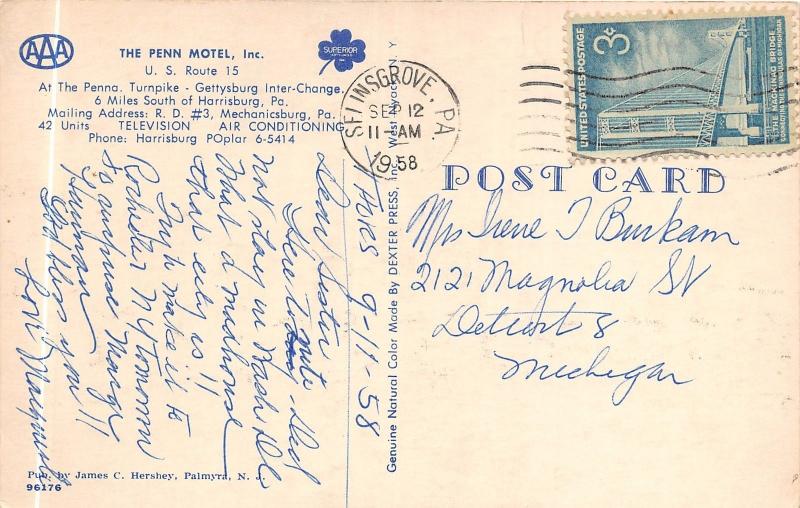 AAA
THE PENN MOTEL, Inc.
U. S. Route 15
At The Penna. Turnpike - Gettysburg Inter-Change.
6 Miles South of Harrisburg, Pa.
Mailing Address: R. D. #3, Mechanicsburg, Pa.
42 Units TELEVISION AIR CONDITIONING
Phone: Harrisburg POplar 6-5414
SUPERIOR
SELINSGROVE, PA.
SEP 12
11-AM
1958
UNITED STATES POSTAGE
3¢
THE MACKINAC BRIDGE
CONNECTING THE PENINSULAS OF MICHIGAN
POST CARD
Mrs Irene T Burkam
2121 Magnolia St
Detroit 8
Michigan
Genuine Natural Color Made By DEXTER PRESS, Inc., West Nyack, N Y
Thurs 9-11-58
Dear Sister
Here to nite
Did
not stay in Wash DC
What a madhouse
that city is!!
make it to
Rochester N Y Tomorrow
to surprise Marge
God bless you!!
Love Marguerite
Pub. by James C. Hershey, Palmyra, N. J.
96176